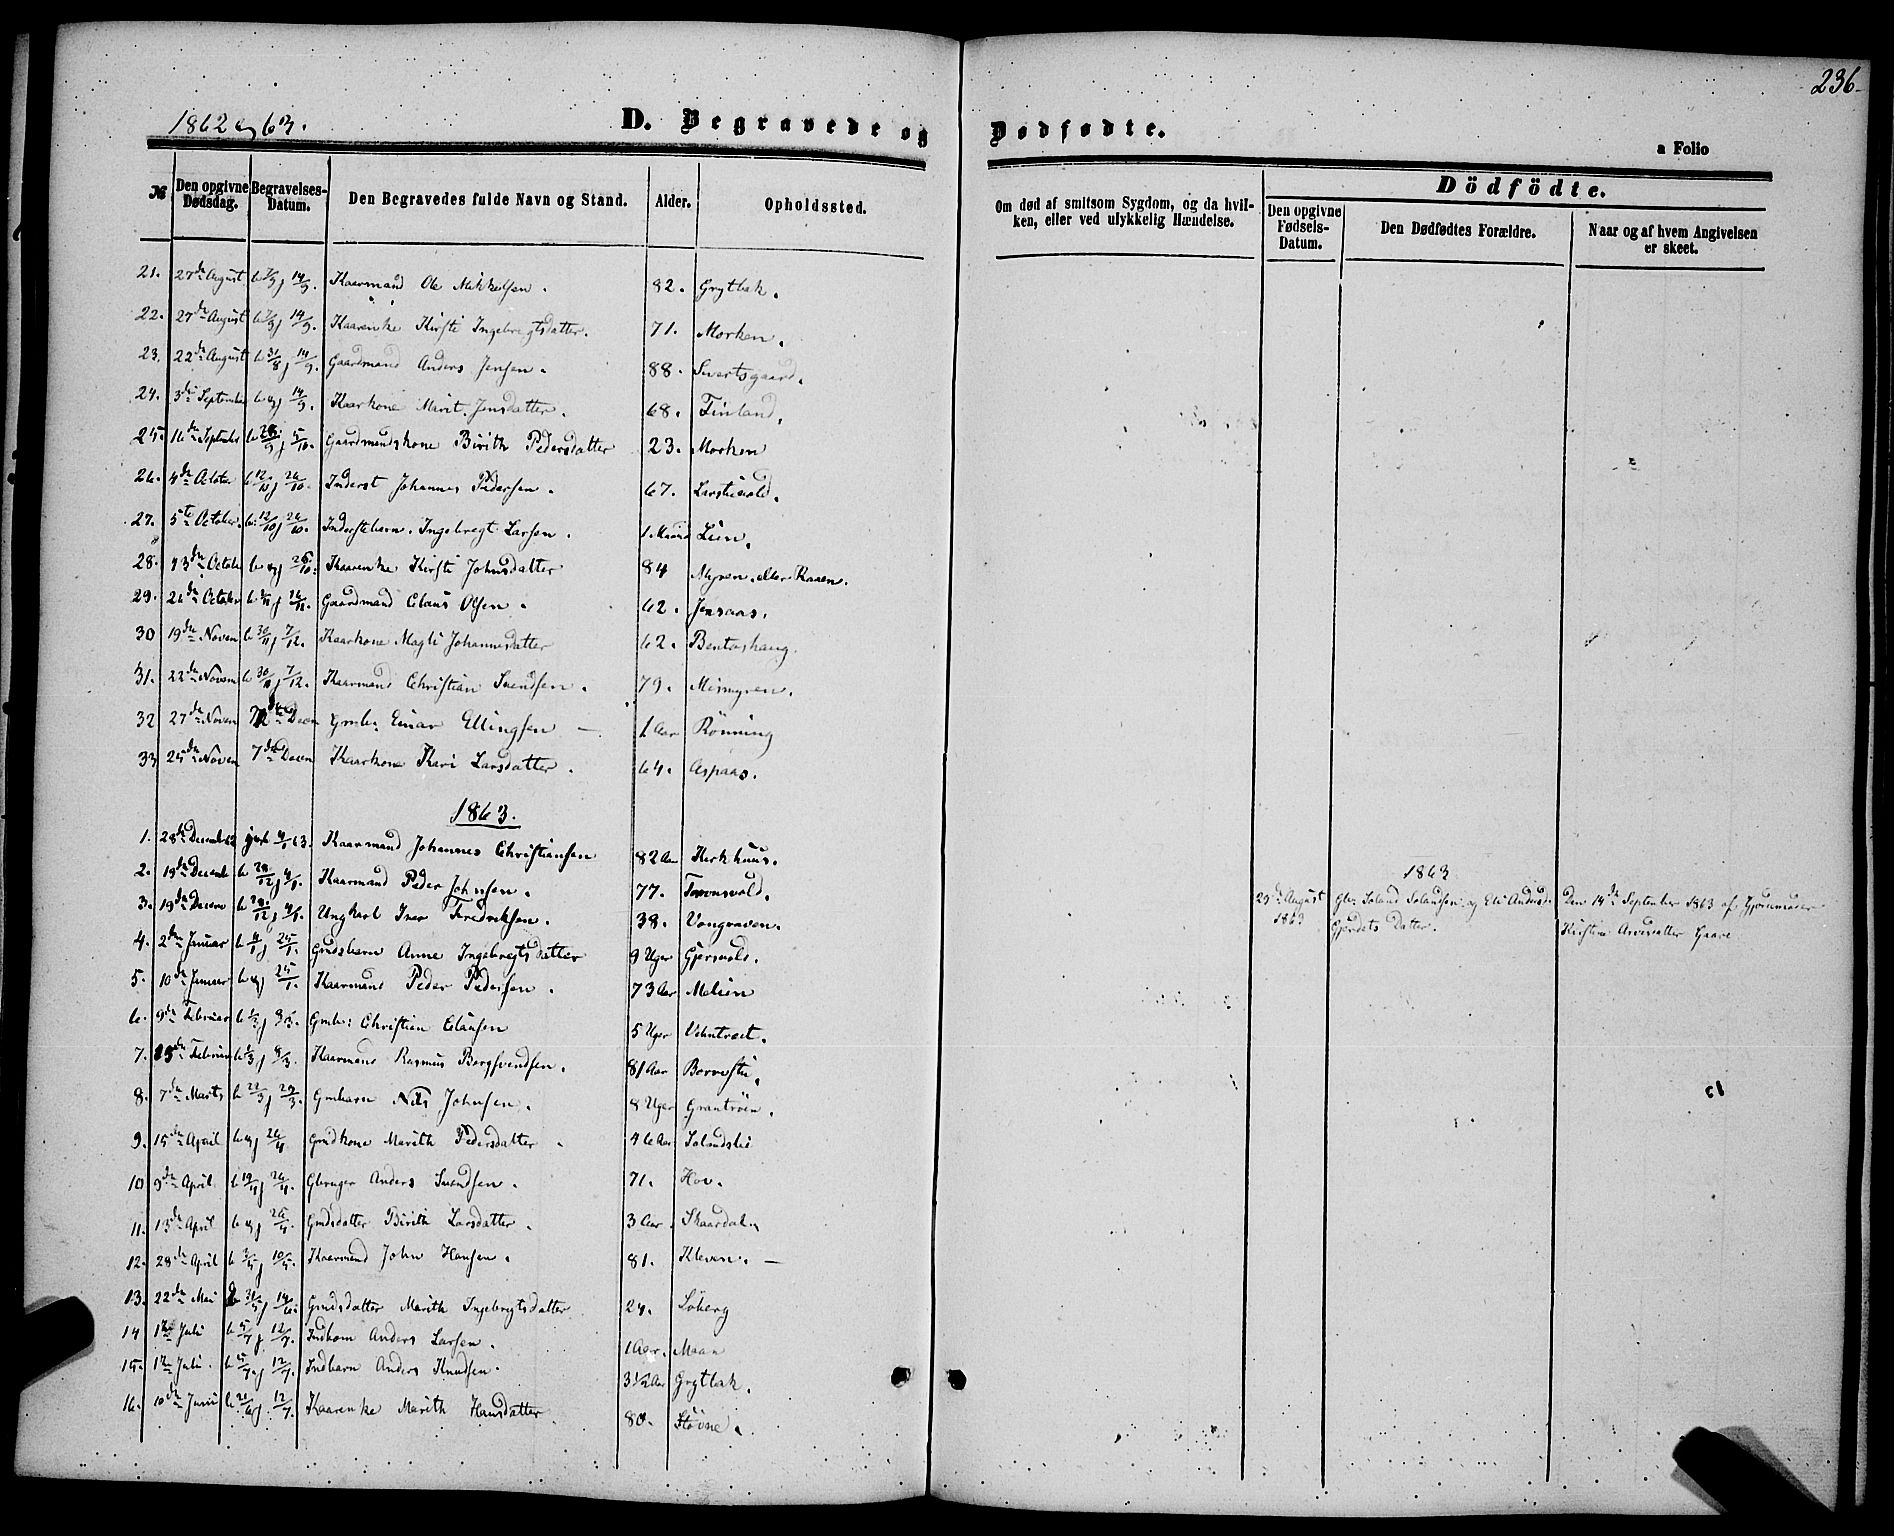 236
1862 og 63.
D. Begravede og Dødfødte.
a Folio
№ Den opgivne Dødsdag. Begravelses-Datum. Den Begravedes fulde Navn og Stand. Alder. Opholdssted. Om død af smitsom Sygdom, og da hvilken, eller ved ulykkelig Hændelse. Dödfödte. Den opgivne Fødsels-Datum. Den Dødfødtes Forældre. Naar og af hvem Angivelsen er skeet.
21. 27de August b 7/9 j 14/9. Kaarmand Ole Mikkelsen. 82. Grytbak.
22. 27de August b 7/9 j 14/9. Kaarenke Kirsti Ingebregtsdatter. 71. Morken.
23. 22de August b 31/8 j 14/9. Gaardmand Anders Jensen. 88. Sivertsgaard.
24. 3de September b og j 14/9. Kaarkone Marit Jensdatter. 68. Finland.
25. 16de September b 28/9 j 5/10. Gaardmandskone Birith Pedersdatter 23. Morken
26. 4de October b 12/10 j 26/10. Inderst Johannes Pedersen. 67.
27. 5te October. b. 12/10 j 26/10. Inderstebarn. Ingebregt Larsen. 1 Maaned Lien.
28. 13de October b og j 26/10. Kaarenke Kirsti Johnsdatter 84 Myren eller Raaen.
29. 26de October Gaardmand Claus Olsen. 62. Jensaas.
30 19de Noven b 30/11 j 7/12. Kaarkone Magli Johannesdatter 62. Bentashaug.
31. 22de Noven b 30/11 j 7/12. Kaarmand Christian Svendsen. 79. Mismyren.
32 27de Noven 7de Decen Gmb. Einar Ellingsen — 1 Aar Rönning
33 25de Noven 7de Decen Kaarkone Kari Larsdatter. 64. Aspaas.
1863.
1. 28de Decemb 62 j og b 4/1 63. Kaarmand Johannes Christiansen 82 Aar Kirkhuus.
2. 19de Decemb b 28/12 j 4/1 Kaarmand Peder Johnsen. 77. Toronsvold.
3. 19de Decem b 28/12 j 4/1 Ungkarl Iver Fredriksen. 38. Vongraven.
4. 2den Januar b 4/1 j 25/1. Gmdsbarn Anne Ingebregtsdatter 9 Uger Gjersvold.
5. 10de Januar b og j 25/1. Kaarmand Peder Pedersen. 73 Aar Melien
6. 9de Februar b 1/3 j 8/3. Gmb: Christian Clausen 5 Uger
7. 15de Februar b 1/3 j 8/3. Kaarmand Rasmus Bergsvendsen. 81 Aar Borrestu.
8. 7de Marts b 22/3 j 29/3. Gmbarn Nils Johnsen. 8 Uger Grantröen.
9. 15de April b og j 26/4 Gmdkone Marith Pedersdatter 46 Aar
10 9de April. b 19/4 j 26/4. Gbruger Anders Svendsen. 71. Hov.
11. 13de April b og j 26/4. Gmdsdatter Birith Larsdatter. 3 Aar. Skaardal.
12. 28de April b 3/5 j 10/5. Kaarmand John Hansen. 81. Kleven. —
13. 22de Mai b 31/5 j 14/6. Gmdsdatter Marith Ingebregtsdatter 24. Löberg
14 1ste Juli b 5/7 j 12/7. Indbarn Anders Larsen. 1 Aar. Maan
15. 1ste Juli. b 5/7 j 12/7. Indbarn Anders Knudsen. 3 1/2 Aar Grytbak.
16. 10de Juni b 21/6 j 12/7. Kaarenke Marith Hansdatter. 80. Stövne.
1863
25de August 1863 Gbr. Eli Gjordets Datter. Den 14de September 1863 af Gjordemoder Kirstine Haave